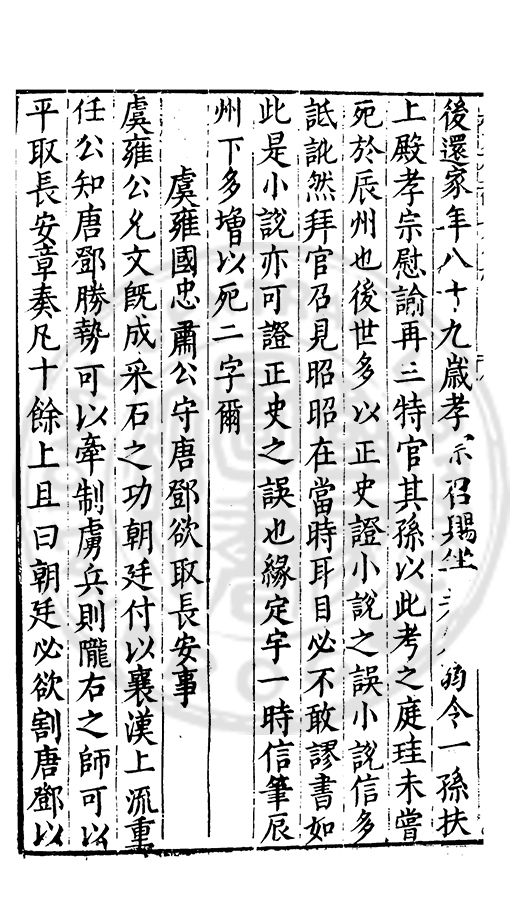 後還家年八十九歲孝宗召賜坐令一孫扶
上殿孝宗慰諭再三特官其孫以此考之庭珪未嘗
死於辰州也後世多以正史證小說之誤小說信多
詆訛然拜官召見昭昭在當時耳目必不敢謬書如
此是小說亦可證正史之誤也緣定宇一時信筆辰
州下多增以死二字爾
虞雍國忠肅公守唐鄧欲取長安事
虞雍公允文既成采石之功朝廷付以襄漢上流重
任公知唐鄧勝勢可以牽制虜兵則隴右之師可以
平取長安章奏凡十餘上且曰朝廷必欲割唐鄧以